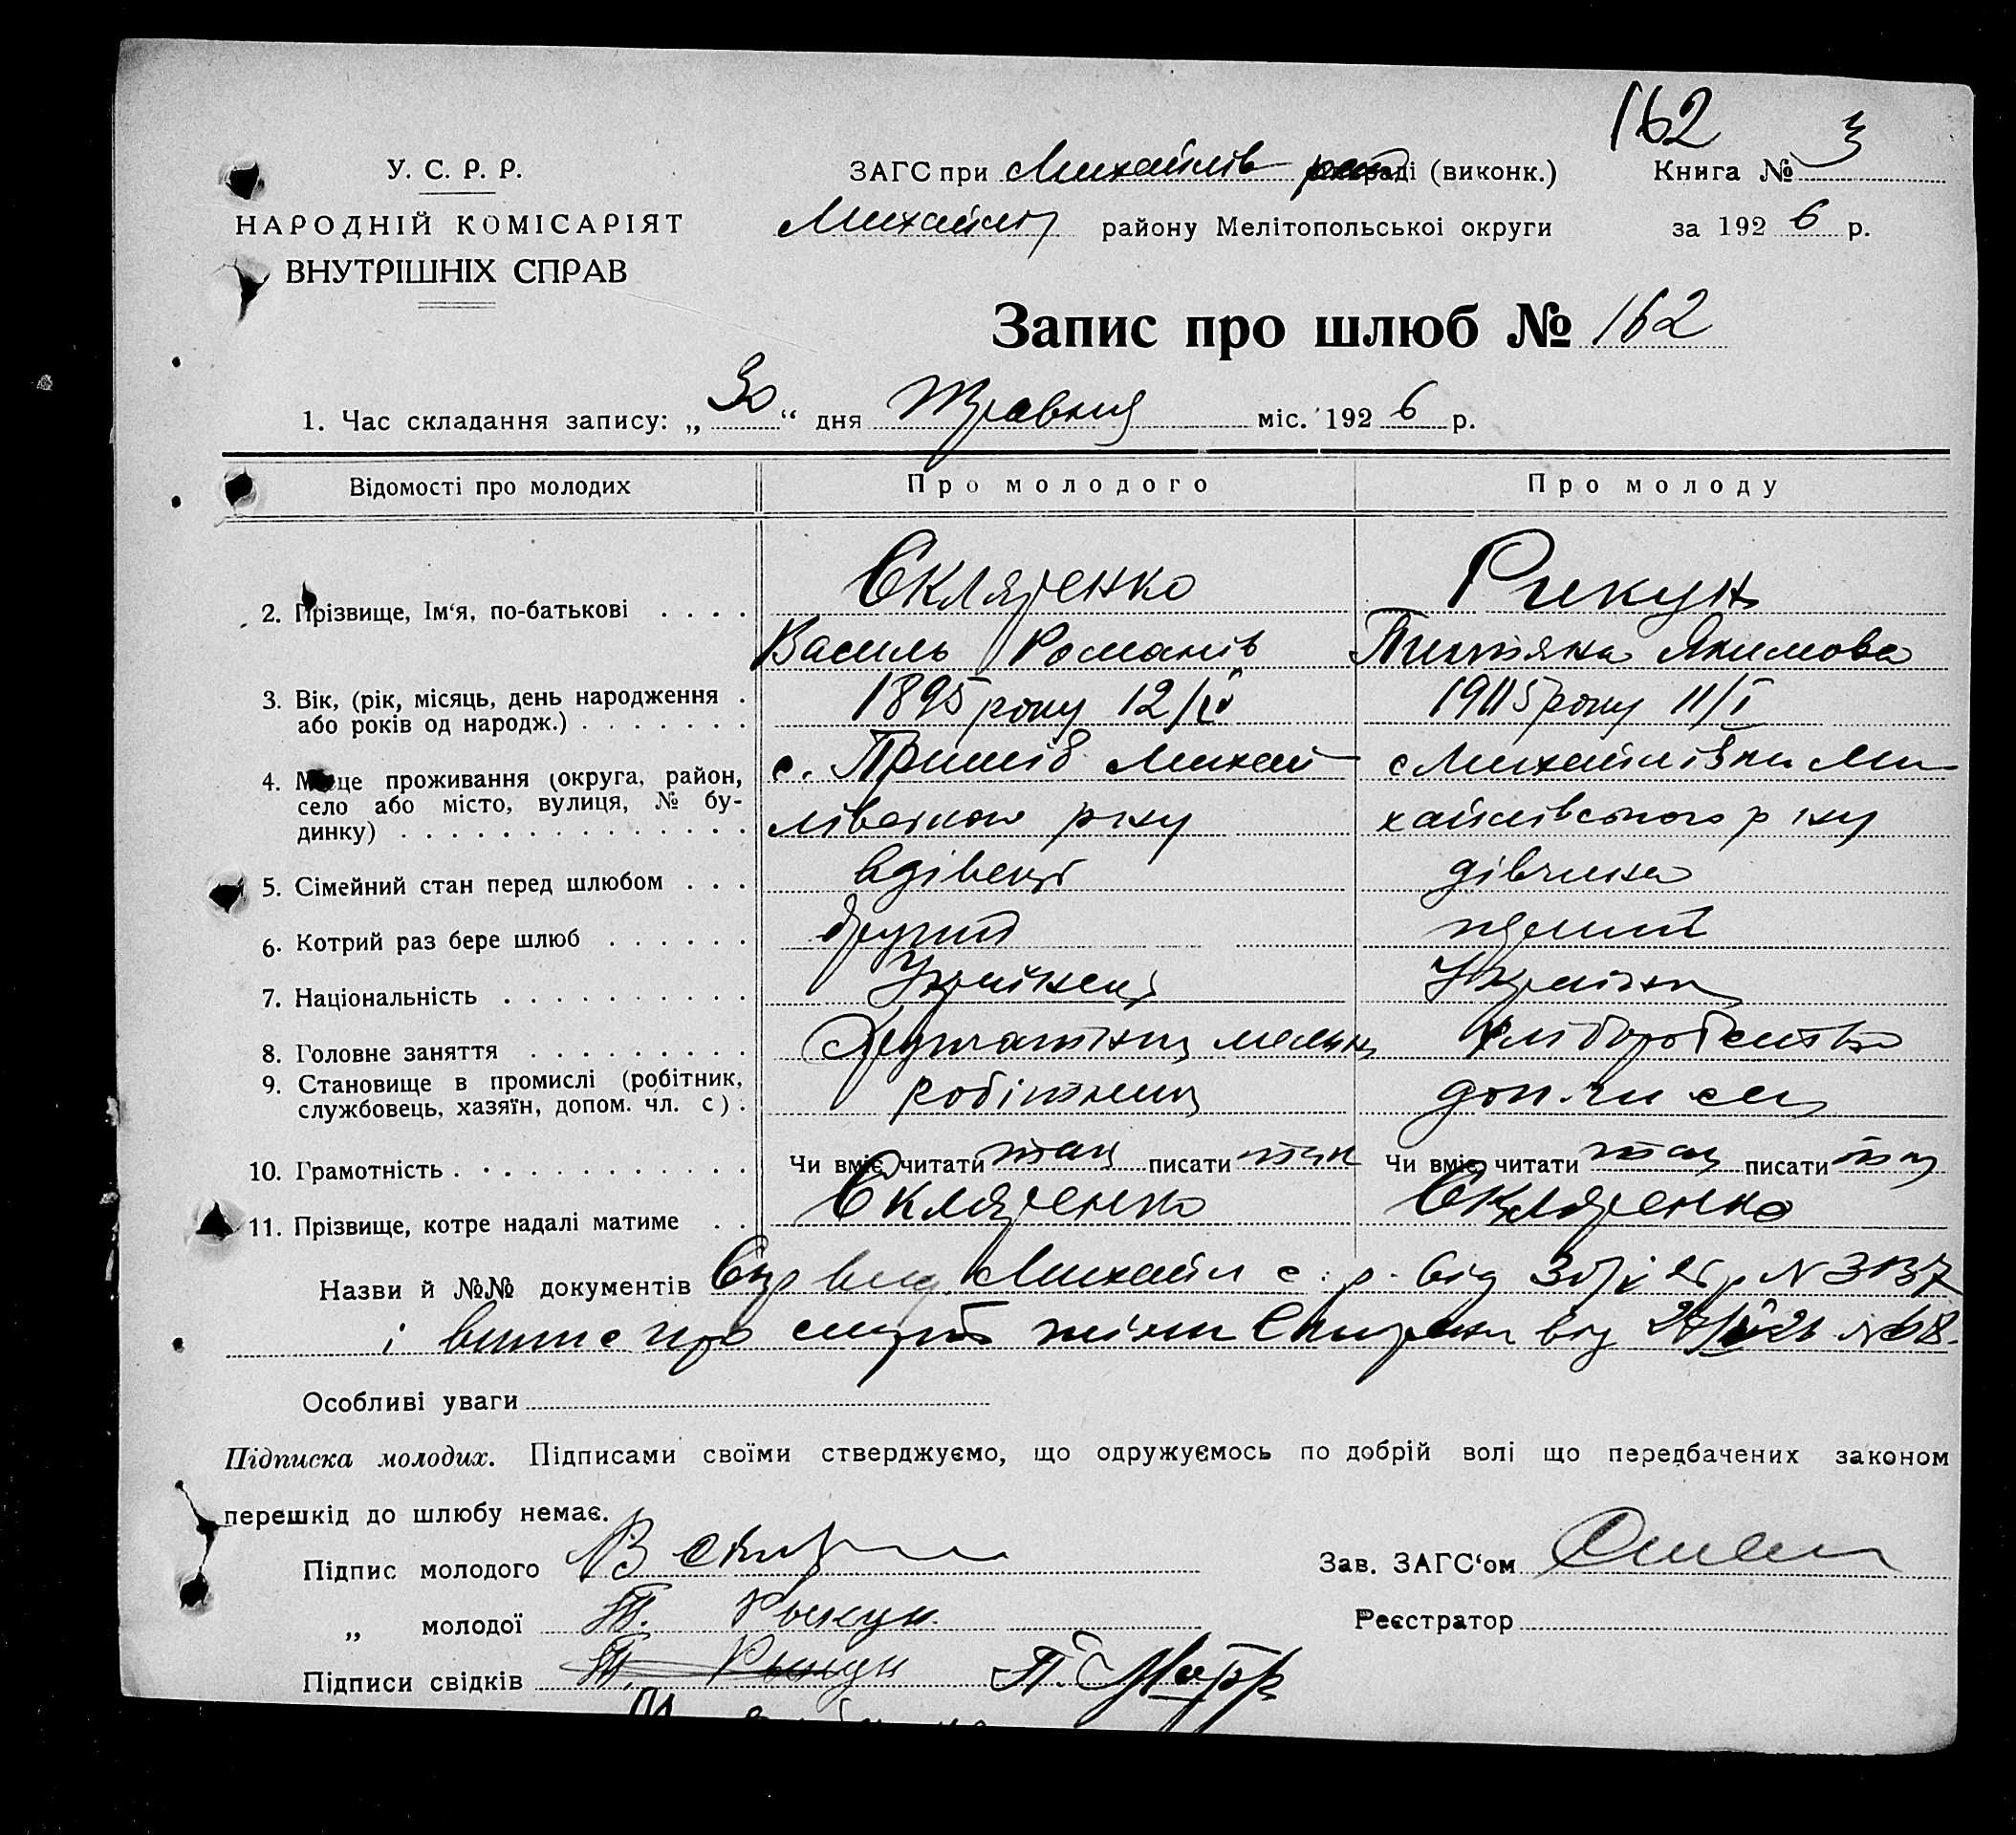 162
У. С. Р. Р.
ЗАГС при Михайлів раді (виконк.) Книга № 3
НАРОДНІЙ КОМІСАРІЯТ
району Мелітопольської округи за 1926 р.
ВНУТРІШНІХ СПРАВ
Запис про шлюб № 162
1. Час складання запису: „30“ дня Травня міс. 1926 р.
Відомості про молодих Про молодого Про молоду
2. Прізвище, Ім'я, по-батькові . . . . Скляренко Рикун
Василь Романів Якимова
3. Вік, (рік, місяць, день народження . 1895 року 12/IV 1905 року 11/I
або років од народж.) . . . . . . .
4. Місце проживання (округа, район, с. Пришиб Михай с Михайлівки Ми
село або місто, вулиця, № бу-
лівського р-ну хайлівського р-ну
динку) . . . . . . . . . . . . . .
5. Сімейний стан перед шлюбом . . . вдівець дівчина
6. Котрий раз бере шлюб . . . . . . другий перший
7. Національність . . . . . . . . . . Українець Українка
8. Головне заняття . . . . . . . . . хліборобство
9. Становище в промислі (робітник, робітник
службовець, хазяїн, допом. чл. с) .
10. Грамотність . . . . . . . . . . . . Чи вміє читати так писати так Чи вміє читати так писати так
11. Прізвище, котре надалі матиме . . Скляренко Скляренко
Назви й №№ документів Михайл с. р. від N
і про смерть жінки від
Особливі уваги
Підписка молодих. Підписами своїми стверджуємо, що одружуємось по добрій волі що передбачених законом
перешкід до шлюбу немає.
Підпис молодого В Зав. ЗАГС'ом
„ молодої Т. Рыкун. Реєстратор
Підписи свідків Т. Рыкун П.